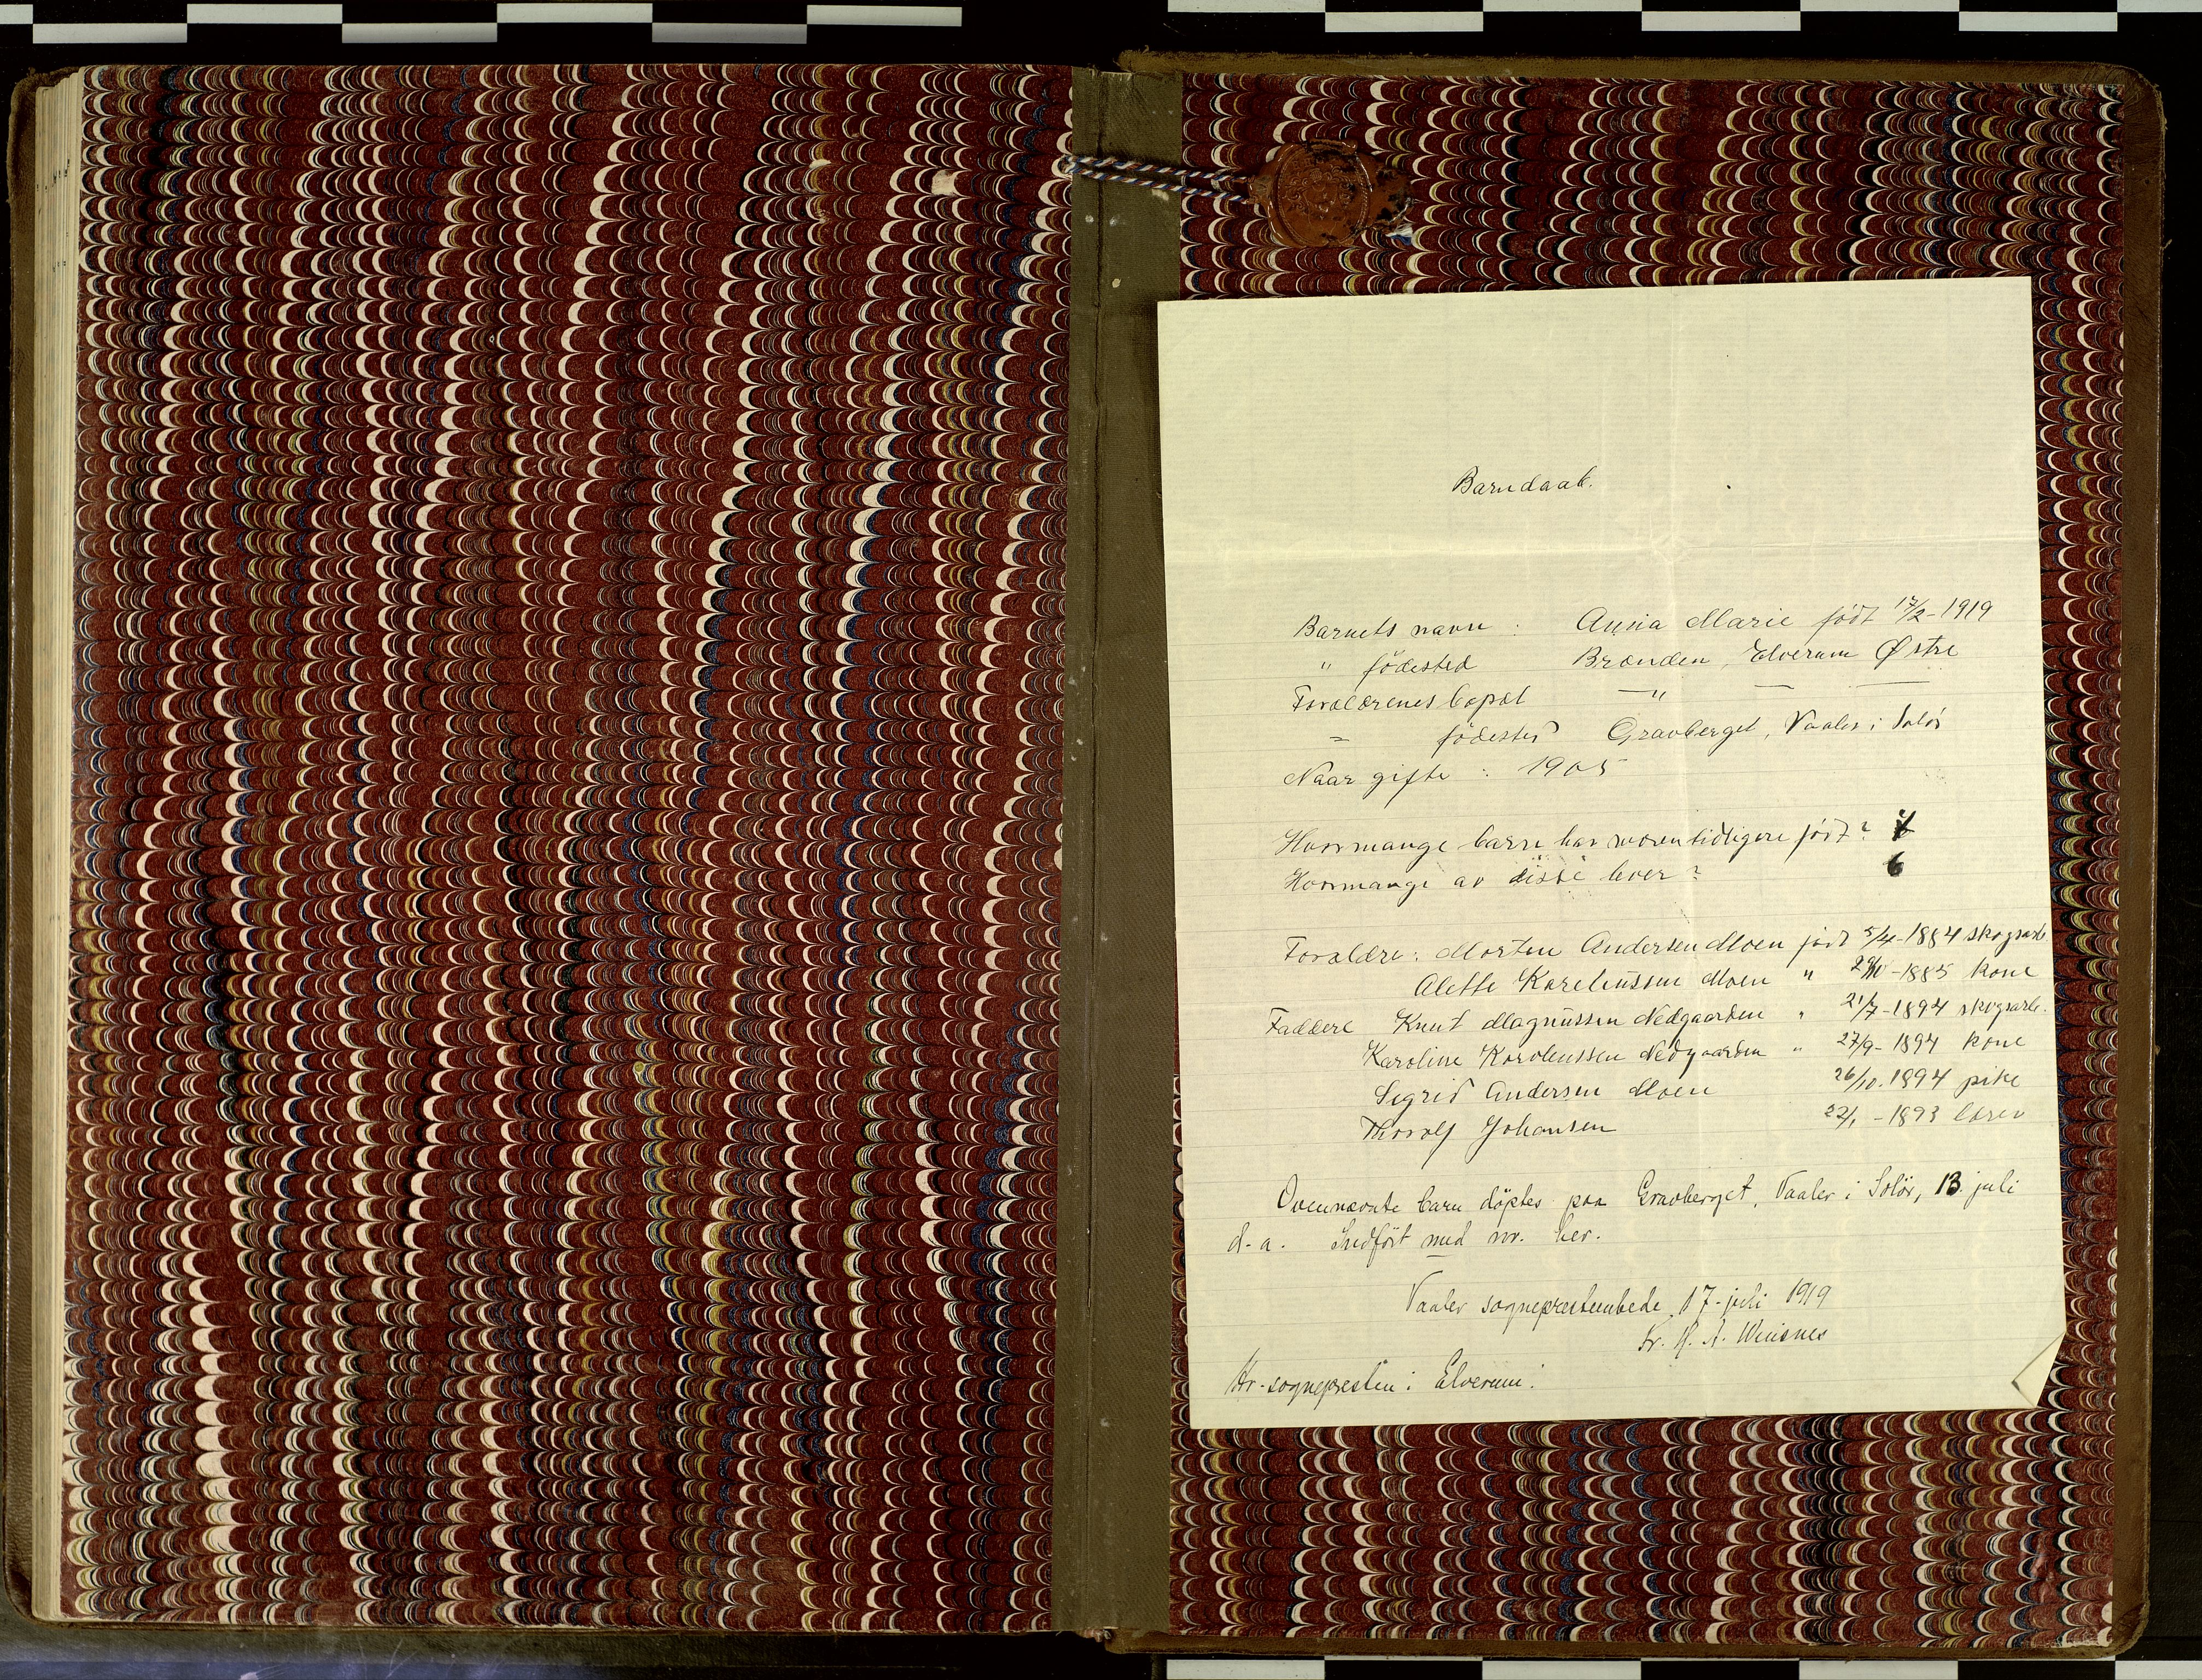 Barndaab.
Barnets navn : Anna Marie född 17/2-1919
" födested Brænden, Elverum Østre
Forældrenes bopæl — " — —
= födested Gravberget, Vaaler i Solör
Naar gifte : 1905
Hvormange barn har moren tidligere född?
Hvormange av disse lever? 6
Forældre: Morten Andersen Moen född 5/4-1884 skogsarb.
Alette Kareliussen Moen " -1885 kone
Faddere Knut Magnussen Nedgaarden " 21/7-1894 skogsarb.
Karoline Karelenssen Nedgaarden " 27/9-1894 kone
Sigrid Andersen Moen 26/10.1894 pike
Thorolf Johansen 22/1-1893 
Ovennævnte barn döptes paa Gravberget, Vaaler i Solör, 13 juli
d. a. Indfört med nr. her.
Vaaler sogneprestembede 17-juli 1919
Fr. H. A. Wiisnes
Hr. sognepresten i Elverum.